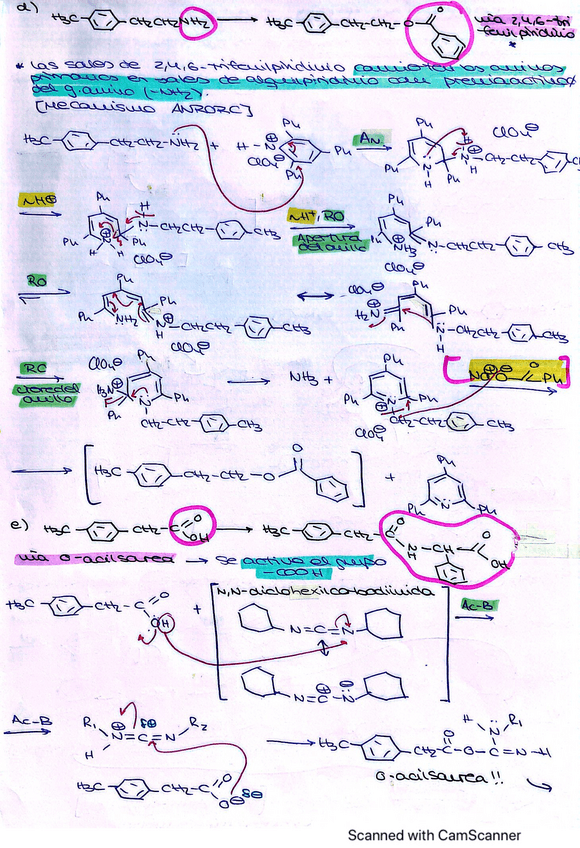 d) H3C CH2CH2NH2 → H3C CH2-CH2-O O vía 2,4,6-tri
-fenilpiridinio
*
* Las sales de 2,4,6-trifenilpiridinio los aminos
primarios en sales de alquilpiridinio con
del g. amino (-NH2).
[MECANISMO ANRORC]
H3C CH2-CH2-NH2 + H-N⊕ ClO4⊖ Ph Ph Ph AN Ph Ph Ph N H N H ClO4⊖ CH2-CH2 CH3
NH⊕ Ph Ph Ph N H H H N-CH2CH2 CH3 ClO4⊖ NH⁺, RO
Apertura
del anillo
Ph Ph NH3 ⊕ N-CH2CH2 CH3 ClO4⊖
RO Ph Ph Ph NH2 N⊕ H CH2CH2 CH3 ClO4⊖ ↔ ClO4⊖ H2N⊕ Ph Ph Ph N-CH2-CH2 CH3 H
RC
cierre del
anillo
ClO4⊖ H3N⊕ Ph Ph Ph N CH2-CH2 CH3 → NH3 + Ph Ph Ph N⊕ CH2-CH2 CH3 ClO4⊖ [Na⊕ ⊖O O Ph
→ [H3C CH2-CH2-O O] + Ph Ph Ph N
e) H3C CH2-C O OH → H3C CH2-C O N H CH C O OH
vía O-acilsarea → se activa el grupo
-COOH
H3C CH2-C O OH + [N,N-diciohexilcarbodiimida N=C=N Ac-B
N=C⊕-N⊖]
Ac-B R1 N⊕=C=N R2 H δ⊕ → H3C CH2-C O O-C=N-H H N R1
H3C CH2-C O O⊖ δ⊖ O-acilsarea!!
Scanned with CamScanner